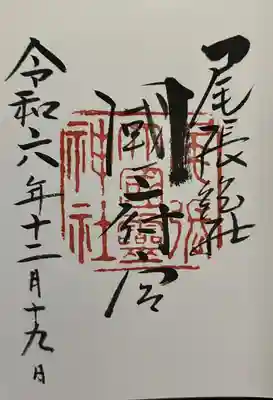 尾張総社
國府宮
尾張
大國靈
神社
令和六年十二月十九日